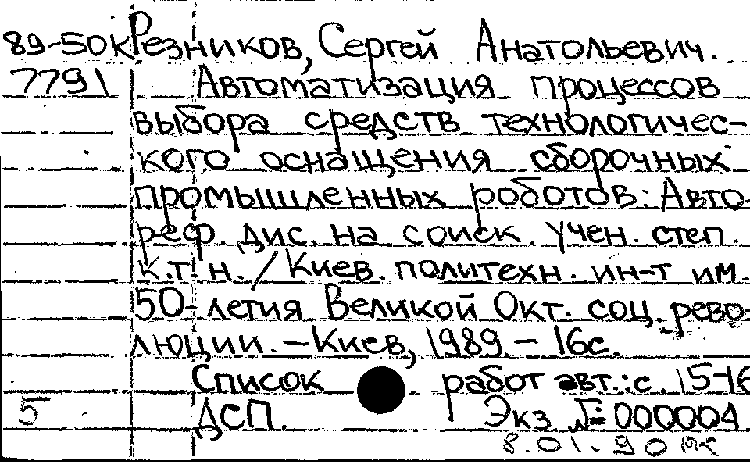 89-50к Резников, Сергей Анатольевич.
7791 Автоматизация процессов
выбора средств технологичес-
кого оснащения сборочных
промышленных роботов: Авто-
реф. дис. на соиск. учен. степ.
к.т.н. / Киев. политехн. ин-т им.
50-летия Великой Окт. соц. рево-
люции. – Киев, 1989. – 16с.
Список работ авт.: с. 15-16
5 ДСП. Экз. № 000004
8.01.90